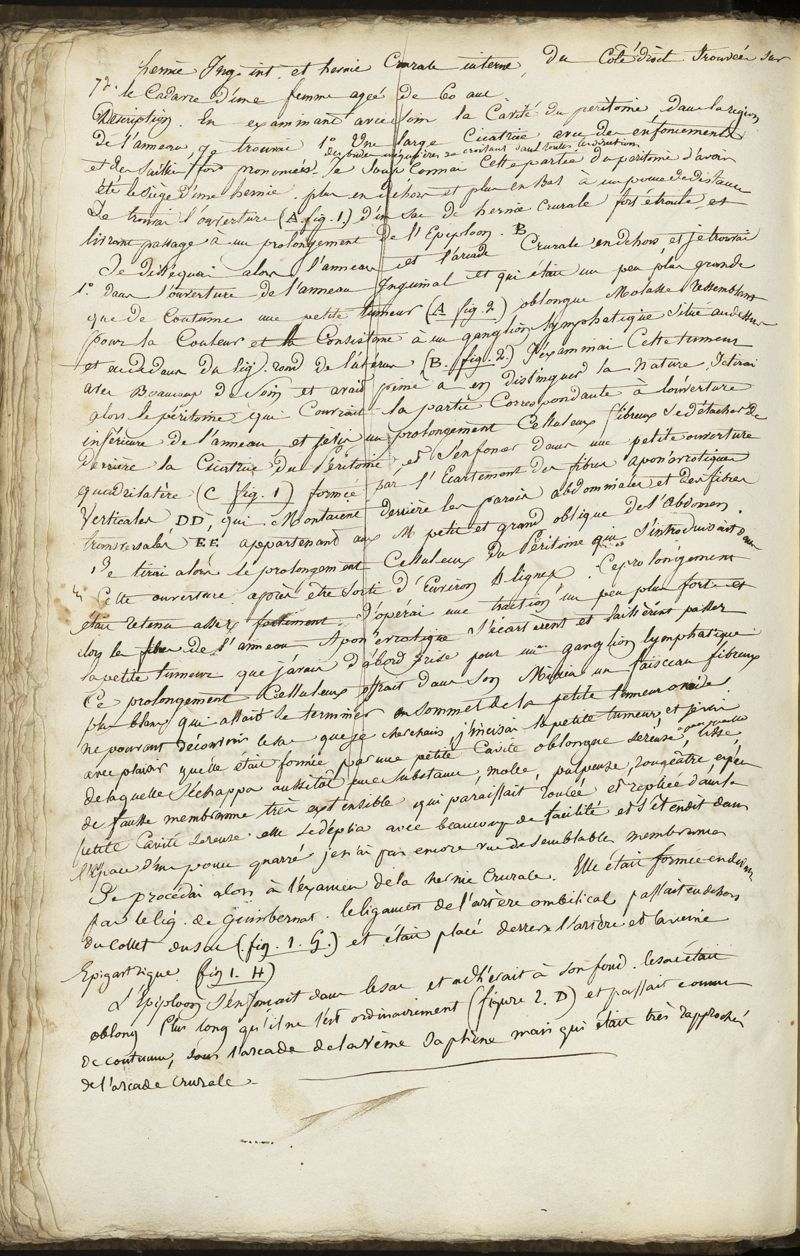 hernie Ing. int. et hernie Crurale interne, du Coté droit trouvée sur
72. le Cadavre d'une femme ageé de 60 ans
Description. En examinant avec soin la Cavité du peritoine, dans la région
de l'anneau, je trouvai 1° Une large Cicatrice avec des enfoncements
des brides irrégulières se croisant dans toutes les directions
et des saillies fort prononcées. Je soupConnai Cette partie du peritoine d'avoir
été le siège d'une hernie. plus en dehors et plus en bas à un pouce de distance
Je trouvai l'ouverture (A. fig. 1.) d'un sac de hernie Crurale fort étroite, et
livrant passage a un prolongement de l'Epiploon. B
Je disséquai alors l'anneau et l'arcade Crurale en dehors et je trouvai
1° dans l'ouverture de l'anneau Inguinal et qui était un peu plus grande
que de Coutume une petite tumeur (A fig. 2) oblongue Molasse ressemblant
pour la Couleur et la Consistence à un ganglion lymphatique Située au dessus
et en dedans du lig. rond de l'uterus (B. fig. 2.) J'examinai Cette tumeur
avec Beaucoup de soin et avais peine a en distinguer la nature. Je tirai
alors le péritoine qui Couvrait la partie Correspondante à l'ouverture
inférieure de l'anneau, et je vis un prolongement Celluleux fibreux Se détacher de
derrière la Cicatrice du Péritoine et s'enfoncer dans une petite ouverture
quadrilatère (C fig. 1) formée par l'Ecartement des fibres aponévrotiques
Verticales DD, qui Montaient derrière les parois abdominales et des fibres
transversales EE appartenant aux M petit et grand oblique de l'Abdomen.
Je tirai alors le prolongement Celluleux du Péritoine qui S'introduisait dans
Cette ouverture. après être sorti d'Environ 8 lignes. Ce prolongement
était retenu assez fortement. J'opérai une traction un peu plus forte et
alors les fibres de l'anneau Aponévrotique s'écartèrent et laissèrent passer
la petite tumeur que j'avais d'abord prise pour un ganglion lymphatique.
Ce prolongement Celluleux offrait dans Son Milieu un faisceau fibreux
plus blanc qui allait se terminer au sommet de la petite tumeur
ne pouvant découvrir le sac que je cherchais, j'incisai la petite tumeur et je vis
avec plaisir qu'elle était formée par une petite Cavité oblongue séreuse, lisse,
de laquelle s'échappa aussitôt une substance molle, pulpeuse, rougeâtre
de fausse membrane très extensible qui paraissait roulée et repliée dans la
petite Cavité séreuse. elle se déplia avec beaucoup de facilité et s'étendit dans
l'Espace d'un pouce quarré je n'ai pas encore vu de semblable membrane
Je procédai alors à l'examen de la hernie Crurale. Elle était formée en dedans
par le lig. de Gimbernat. le ligament de l'artère ombilical passait en dehors
du Collet du sac (fig. 1. G.) et était placé derrière l'artère et la veine
Epigastrique. (fig 1. H)
L'Epiploon s'enfonçait dans le sac et adhérait à son fond. le sac était
oblong Plus long qu'il ne l'est ordinairement (figure 2. D) et passait comme
de coutume, sous l'arcade de la veine Saphène mais qui était très rapprochée
de l'arcade Crurale.